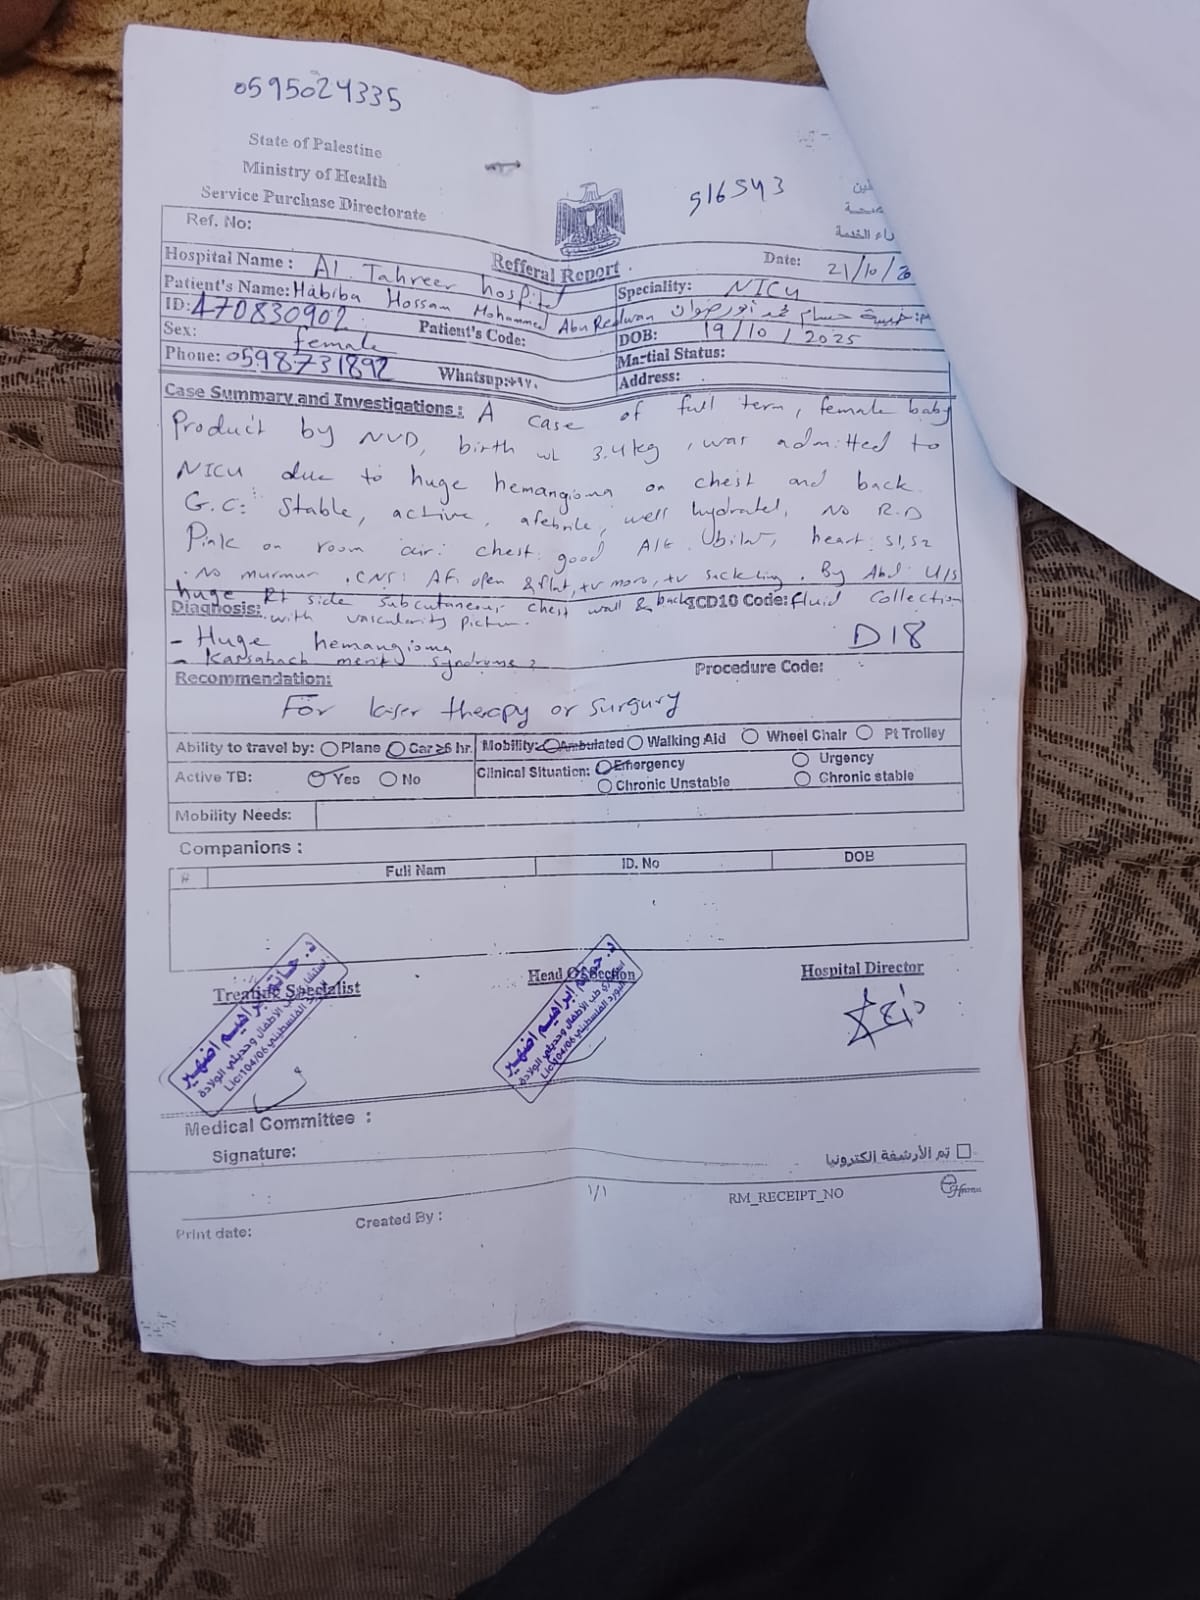 0595024335
State of Palestine
Ministry of Health
Service Purchase Directorate
516543
Ref. No:
Refferal Report
Date: 21/10/20
Hospital Name: Al. Tahreer hospital
Speciality: NICU
Patient's Name: Habiba Hossam Mohammed Abu Redwan حبيبة حسام محمد أبو رضوان
ID: 470830902
Patient's Code:
DOB: 19/10/2025
Sex: female
Martial Status:
Phone: 0598731892
Whatsup:+٩٧٠
Address:
Case Summary and Investigations: A case of full term, female baby
Product by NVD, birth wt 3.4 kg, was admitted to
NICU due to huge hemangioma on chest and back.
G.C: Stable, active, afebrile, well hydrated, No R.D
Pink on room air: chest: good A/E bilat, heart: S1, S2
. No murmur. CNS: AF. open & flat, +v moro, +v suckling. By Abd U/S
huge Rt side subcutaneous chest wall & back fluid Collection
Diagnosis: with vascularity picture.
ICD10 Code:
D18
- Huge hemangioma
- Kassabach merit syndrome?
Procedure Code:
Recommendation:
For laser therapy or surgury
Ability to travel by: Plane Car ≥6 hr. Mobility: Ambulated Walking Aid Wheel Chair Pt Trolley
Active TB: Yes No Clinical Situation: Emergency Urgency
Chronic Unstable Chronic stable
Mobility Needs:
Companions :
# Full Nam ID. No DOB
Treating Specialist
Head Of Section
Hospital Director
د. حاتم ابراهيم اضهير
طب الأطفال وحديثي الولادة
Lic:104/06
د. حاتم ابراهيم اضهير
طب الأطفال وحديثي الولادة
البورد الفلسطيني
Lic:104/06
Medical Committee :
Signature:
تم الأرشفة الكترونيا
١/١
RM_RECEIPT_NO
Print date:
Created By :